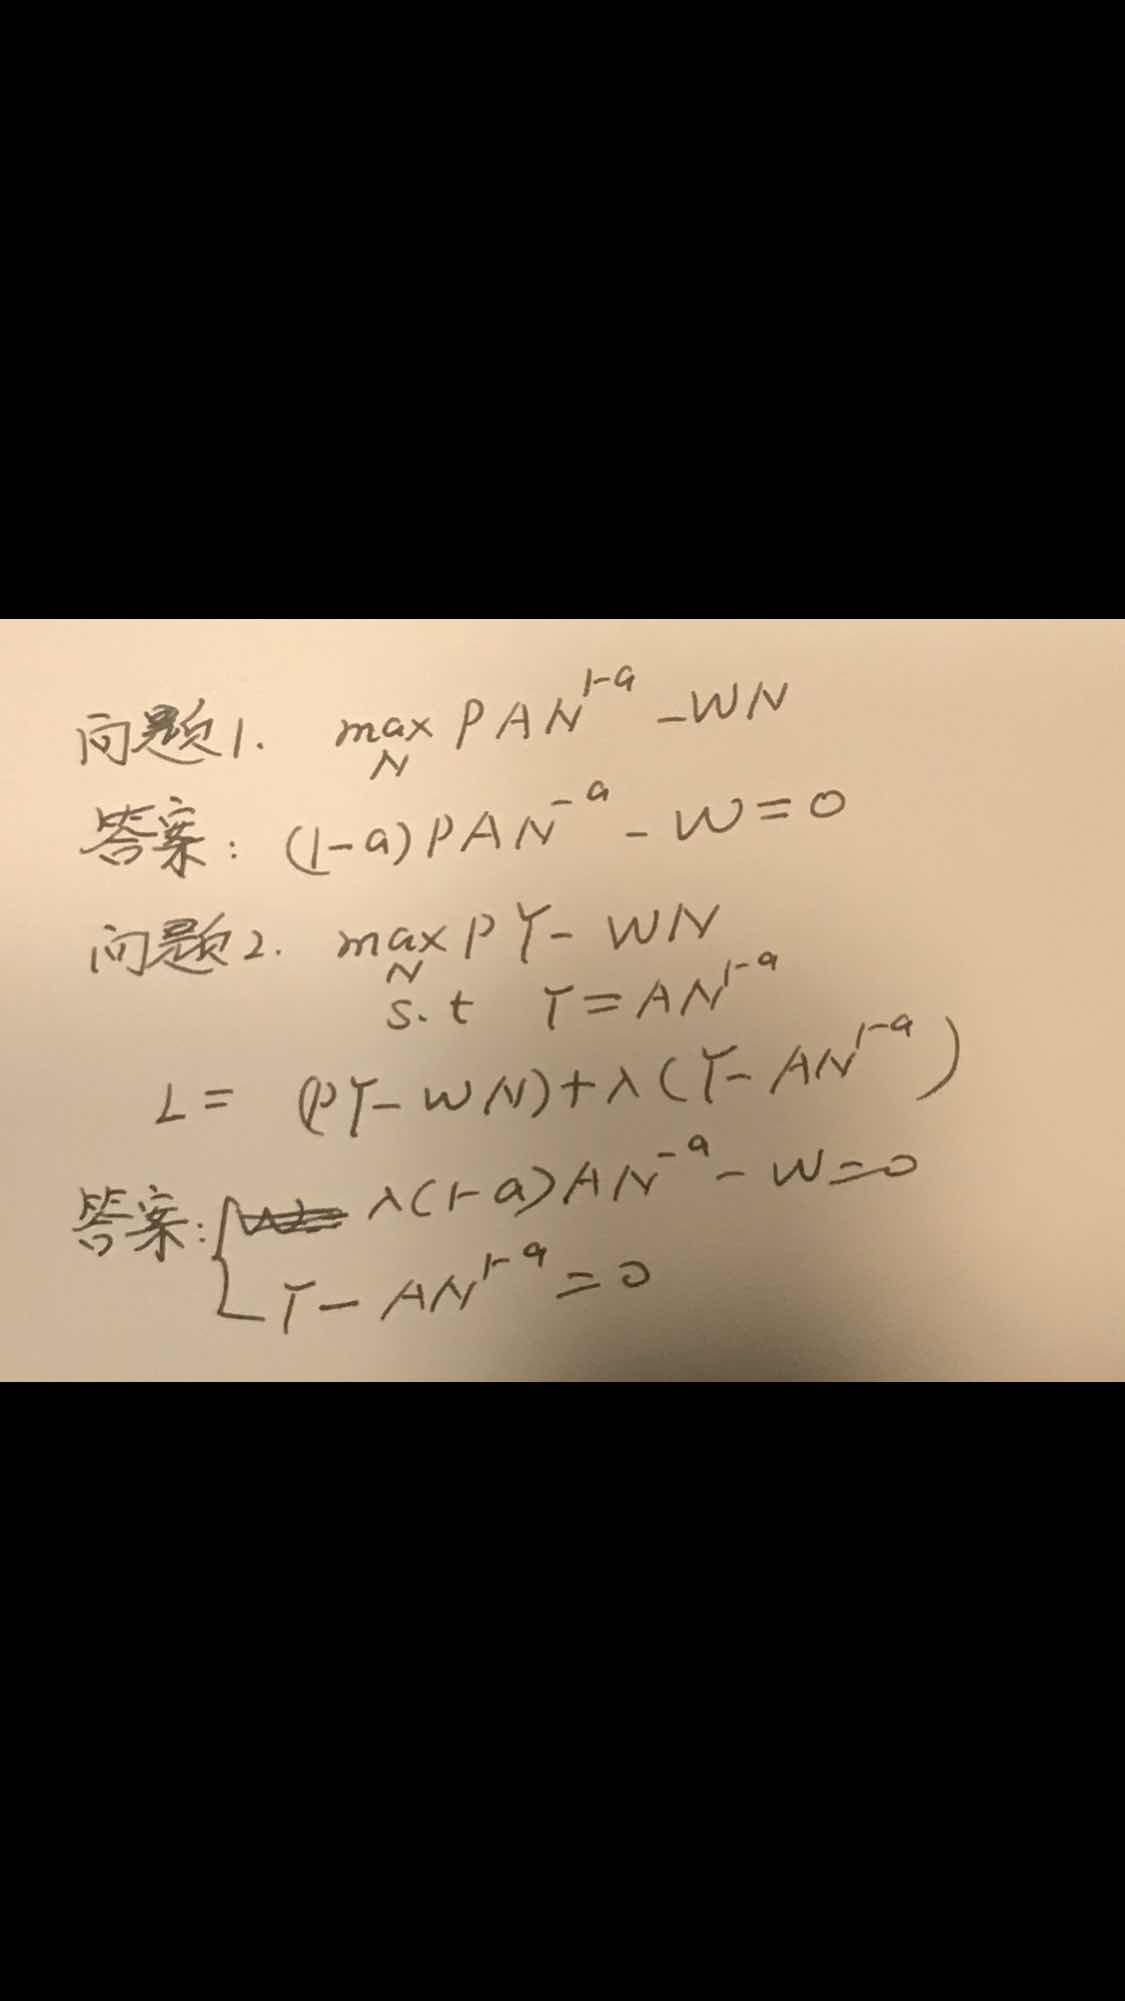 问题1. max PAN^{1-a} - WN
N
答案: (1-a)PAN^{-a} - W = 0
问题2. max PY - WN
N
s.t Y = AN^{1-a}
L = (PY - WN) + λ(Y - AN^{1-a})
答案: { λ(1-a)AN^{-a} - W = 0
Y - AN^{1-a} = 0